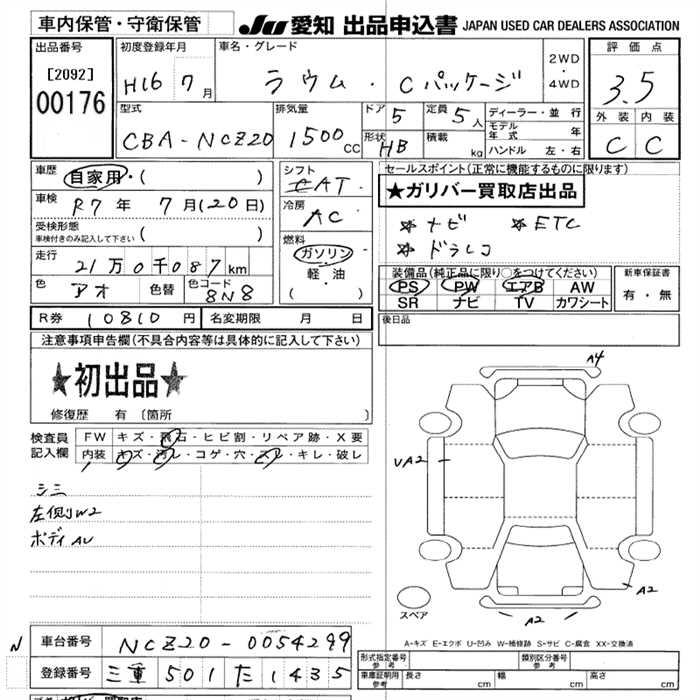 車内保管・守衛保管 JU 愛知 出品申込書 JAPAN USED CAR DEALERS ASSOCIATION
出品番号 初度登録年月 車名・グレード 評価点
[2092] H16 7月 ラウム・Cパッケージ 2WD・4WD 3.5
00176 型式 排気量 ドア 5 定員 5人 ディーラー・並行 外装 内装
CBA-NCZ20 1500cc 形状 HB 積載 kg モデル年式 年 C C
ハンドル 左・右
車歴 自家用・( ) シフト AT セールスポイント(正常に機能するものに限ります)
車検 R7年 7月(20日) 冷房 AC ★ガリバー買取店出品
受検形態 ( ) ナビ ETC
車検付きのみ記入して下さい 燃料 ドラレコ
走行 21万0千087km ガソリン・軽油 装備品(純正品に限り○をつけてください) 新車保証書
色 アオ 色替 色コード 8N8 ・( ) PS PW エアB AW 有・無
SR ナビ TV カワシート
R券 10810円 名変期限 月 日 後日品
注意事項申告欄(不具合内容等は具体的に記入して下さい)
★初出品★
修復歴 有 〔箇所 〕
A4
検査員 FW キズ・飛石・ヒビ割・リペア跡・X要
記入欄 内装 キズ・汚レ・コゲ・穴・スレ・キレ・破レ
VA2
シミ
左側W2
ボディAU
A2
スペア
A2
A-キズ E-エクボ U-凹み W-補修跡 S-サビ C-腐食 XX-交換済
N 車台番号 NCZ20-0054299
登録番号 三重 501 た 1435
形式指定番号 参考 類別区分番号 参考
車庫証明用 参考 長さ cm 幅 cm 高さ cm